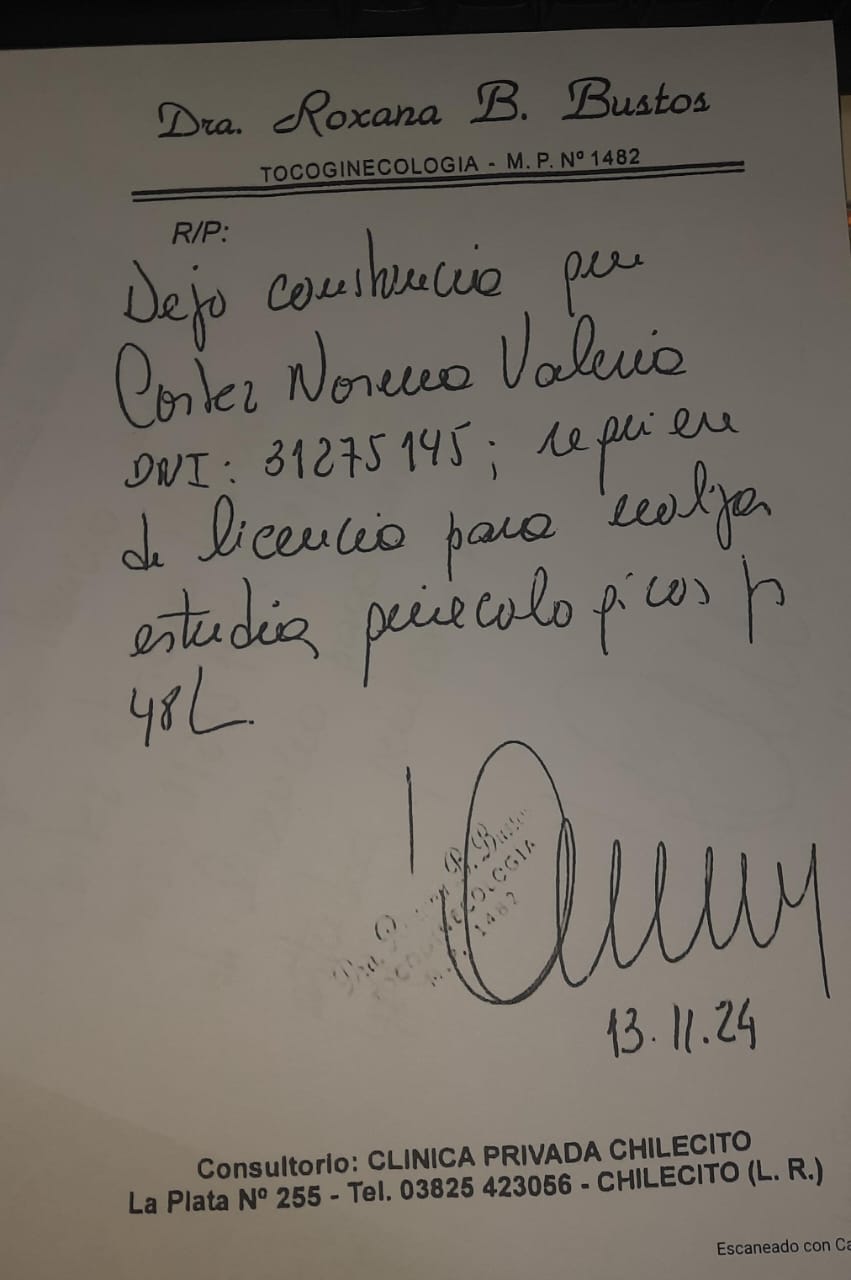 Dra. Roxana B. Bustos
TOCOGINECOLOGIA - M. P. Nº 1482
R/P:
Dejo constancia que
Cortez Norma Valeria
DNI: 31275145; requiere
de licencia para realizar
estudios ginecologicos p/
48
Dra. B. Bustos
TOCOGINECOLOGIA
M.P. 1482
13.11.24
Consultorio: CLINICA PRIVADA CHILECITO
La Plata Nº 255 - Tel. 03825 423056 - CHILECITO (L. R.)
Escaneado con Ca